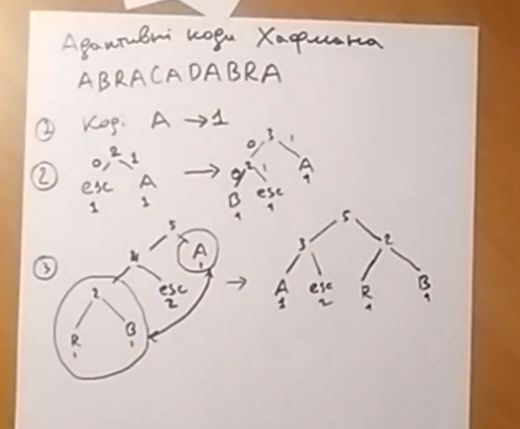 Адаптивні коди Хафмана
ABRACADABRA
① Код: A → 1
② 2 0 1 esc 1 A 1 → 3 0 1 2 0 1 B 1 esc 1 A 1
③ 5 4 A 1 2 esc 2 R 1 B 1 → 5 3 2 A 1 esc 2 R 1 B 1